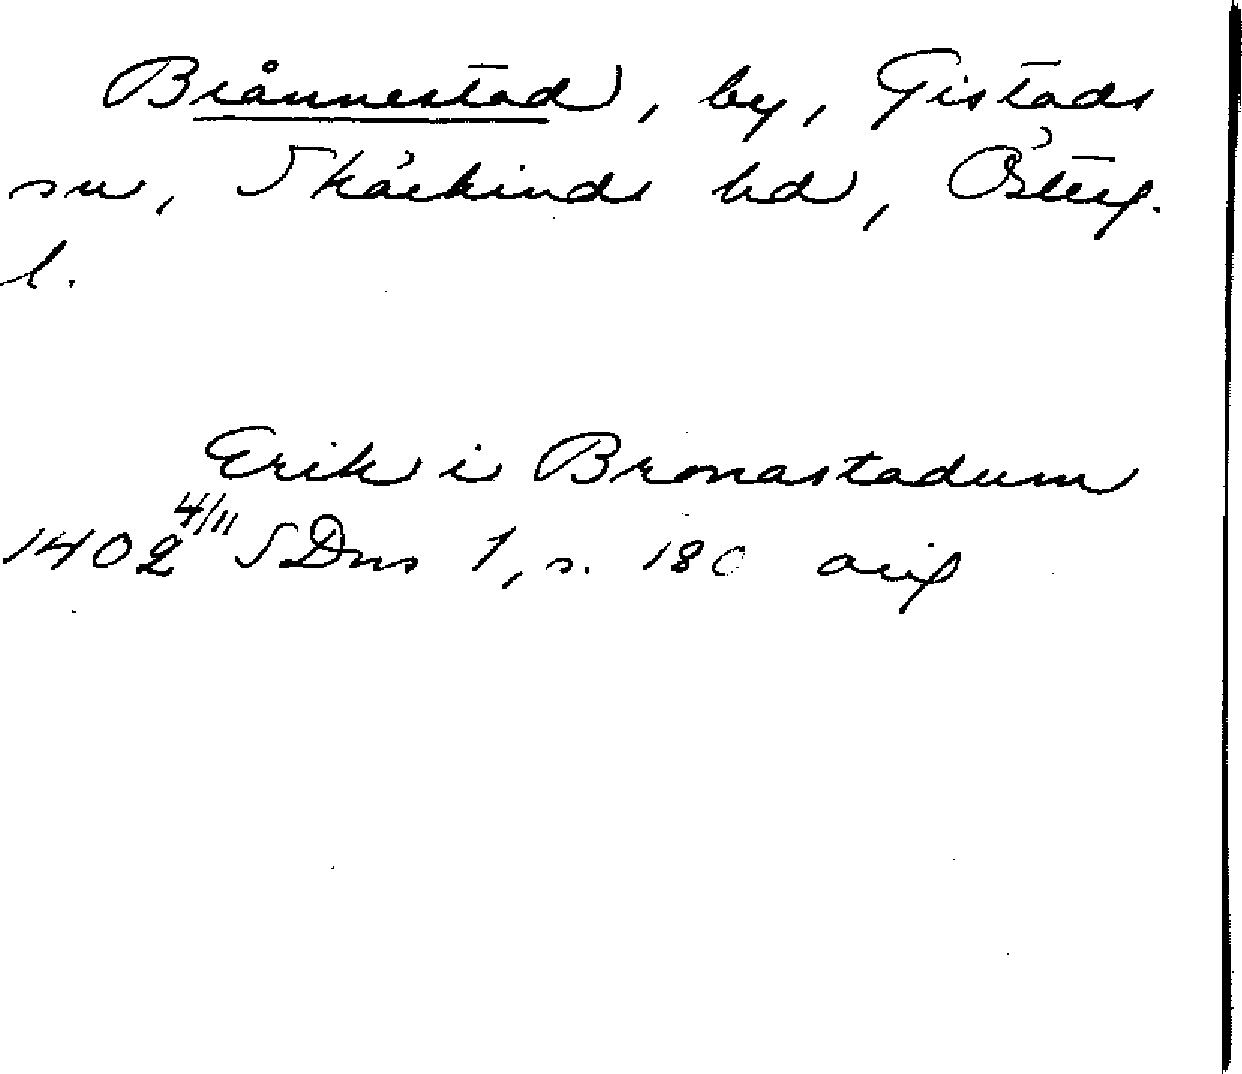 Brånnestad, by, Gistads
sn, Skärkinds hd, Österg.
l.
Erik i Bronastadum
1402 4/11 SDns 1, s. 180 orig